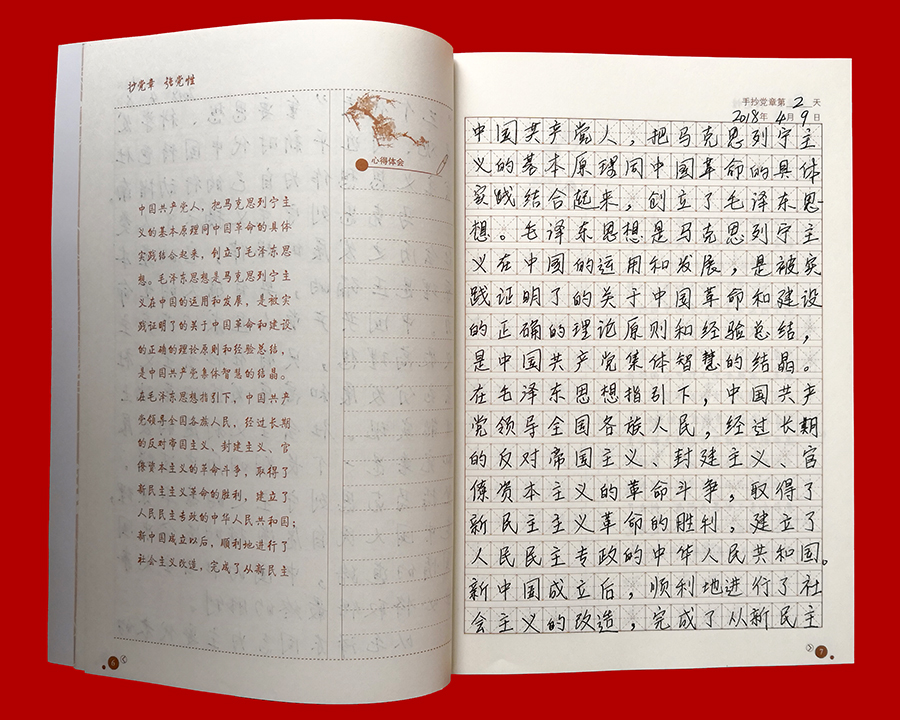 抄党章 强党性
心得体会
中国共产党人，把马克思列宁主
义的基本原理同中国革命的具体
实践结合起来，创立了毛泽东思
想。毛泽东思想是马克思列宁主
义在中国的运用和发展，是被实
践证明了的关于中国革命和建设
的正确的理论原则和经验总结，
是中国共产党集体智慧的结晶。
在毛泽东思想指引下，中国共产
党领导全国各族人民，经过长期
的反对帝国主义、封建主义、官
僚资本主义的革命斗争，取得了
新民主主义革命的胜利，建立了
人民民主专政的中华人民共和国；
新中国成立以后，顺利地进行了
社会主义改造，完成了从新民主
6
手抄党章第 2 天
2018年 4月 9日
中国共产党人，把马克思列宁主
义的基本原理同中国革命的具体
实践结合起来，创立了毛泽东思
想。毛泽东思想是马克思列宁主
义在中国的运用和发展，是被实
践证明了的关于中国革命和建设
的正确的理论原则和经验总结，
是中国共产党集体智慧的结晶。
在毛泽东思想指引下，中国共产
党领导全国各族人民，经过长期
的反对帝国主义、封建主义、官
僚资本主义的革命斗争，取得了
新民主主义革命的胜利，建立了
人民民主专政的中华人民共和国。
新中国成立后，顺利地进行了社
会主义的改造，完成了从新民主
7